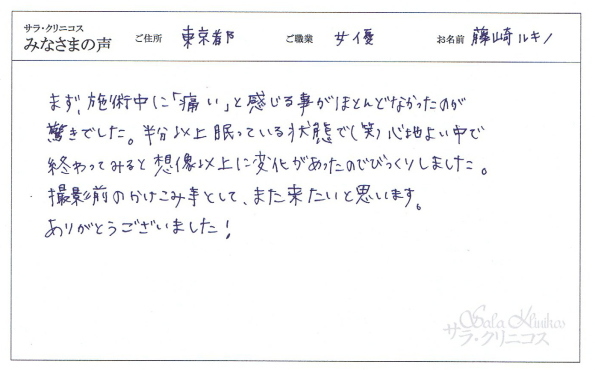 サラ・クリニコス
みなさまの声
ご住所 東京都 ご職業 女優 お名前 藤崎ルキノ
まず、施術中に「痛い」と感じる事がほとんどなかったのが
驚きでした。半分以上眠っている状態で(笑)心地よい中で
終わってみると想像以上に変化があったのでびっくりしました。
撮影前のかけこみ寺として、また来たいと思います。
ありがとうございました!
Sala Klinikos
サラ・クリニコス